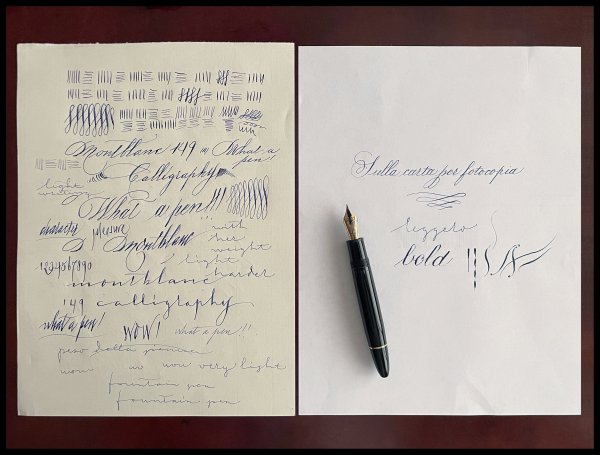 Montblanc 149 What a
pen!
Calligraphy
light
writing
What a pen!!!
character pressure
Montblanc
with
her
weight
light
harder
1234567890
montblanc
149 calligraphy
what a pen!
WOW!
what a pen!!
peso della penna
wow very light
fountain pen
fountain pen
Sulla carta per fotocopia
leggero
bold